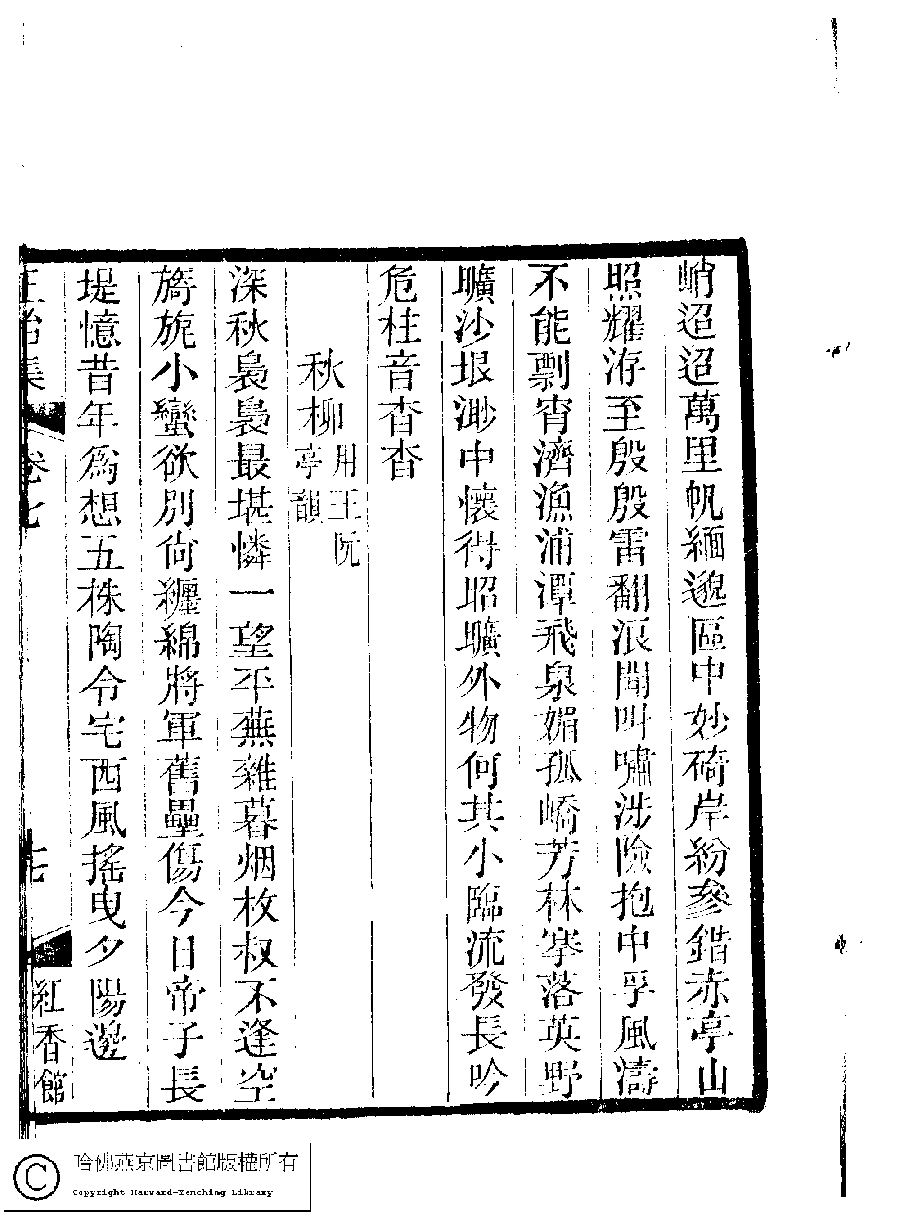 峭迢迢萬里帆緬邈區中妙碕岸紛參錯赤亭山
照耀洊至殷殷雷翻浪聞叫嘯涉險抱中孚風濤
不能剽宵濟漁浦潭飛泉媚孤嶠芳林搴落英野
曠沙垠渺中懷得昭曠外物何其小臨流發長吟
危柱音杳杳
秋柳用王阮亭韻
深秋裊裊最堪憐一望平蕪雜暮烟枚叔不逢空
旖旎小蠻欲別尙纏綿將軍舊壘傷今日帝子長
堤憶昔年爲想五株陶令宅西風搖曳夕陽邊
卷七
紅香館
哈佛燕京圖書館版權所有
Copyright Harvard-Yenching Library